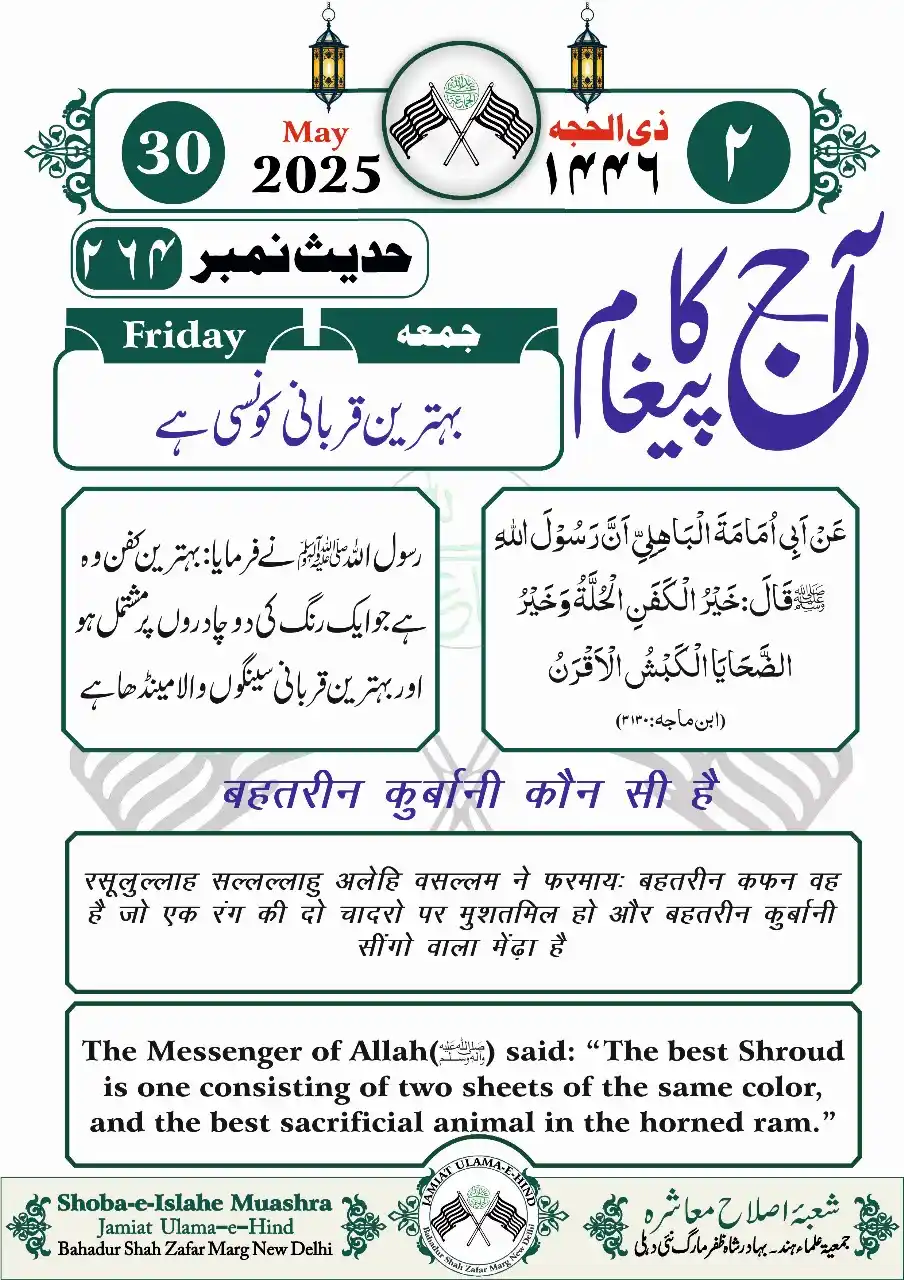 30
May
2025
ذی الحجہ
۱۴۴۶
۲
حدیث نمبر ۲۶۴
آج کا پیغام
Friday
جمعہ
بہترین قربانی کونسی ہے
عَنْ اَبِی اُمَامَةَ الْبَاهِلِیِّ اَنَّ رَسُوْلَ اللهِ
ﷺ قَالَ: خَیْرُ الْکَفَنِ الْحُلَّةُ وَخَیْرُ
الضَّحَایَا الْکَبْشُ الْاَقْرَنُ
(ابن ماجہ: ۳۱۳۰)
رسول اللہ ﷺ نے فرمایا: بہترین کفن وہ
ہے جو ایک رنگ کی دو چادروں پر مشتمل ہو
اور بہترین قربانی سینگوں والا مینڈھا ہے
बहतरीन कुर्बानी कौन सी है
रसूलुल्लाह सल्लल्लाहु अलेहि वसल्लम ने फरमायः बहतरीन कफन वह
है जो एक रंग की दो चादरो पर मुशतमिल हो और बहतरीन कुर्बानी
सींगो वाला मेंढ़ा है
The Messenger of Allah(ﷺ) said: “The best Shroud
is one consisting of two sheets of the same color,
and the best sacrificial animal in the horned ram.”
Shoba-e-Islahe Muashra
Jamiat Ulama-e-Hind
Bahadur Shah Zafar Marg New Delhi
JAMIAT ULAMA-E-HIND
Bahadur Shah Zafar Marg New Delhi
شعبۂ اصلاح معاشرہ
جمعیۃ علماء ہند۔ بہادر شاہ ظفر مارگ نئی دہلی